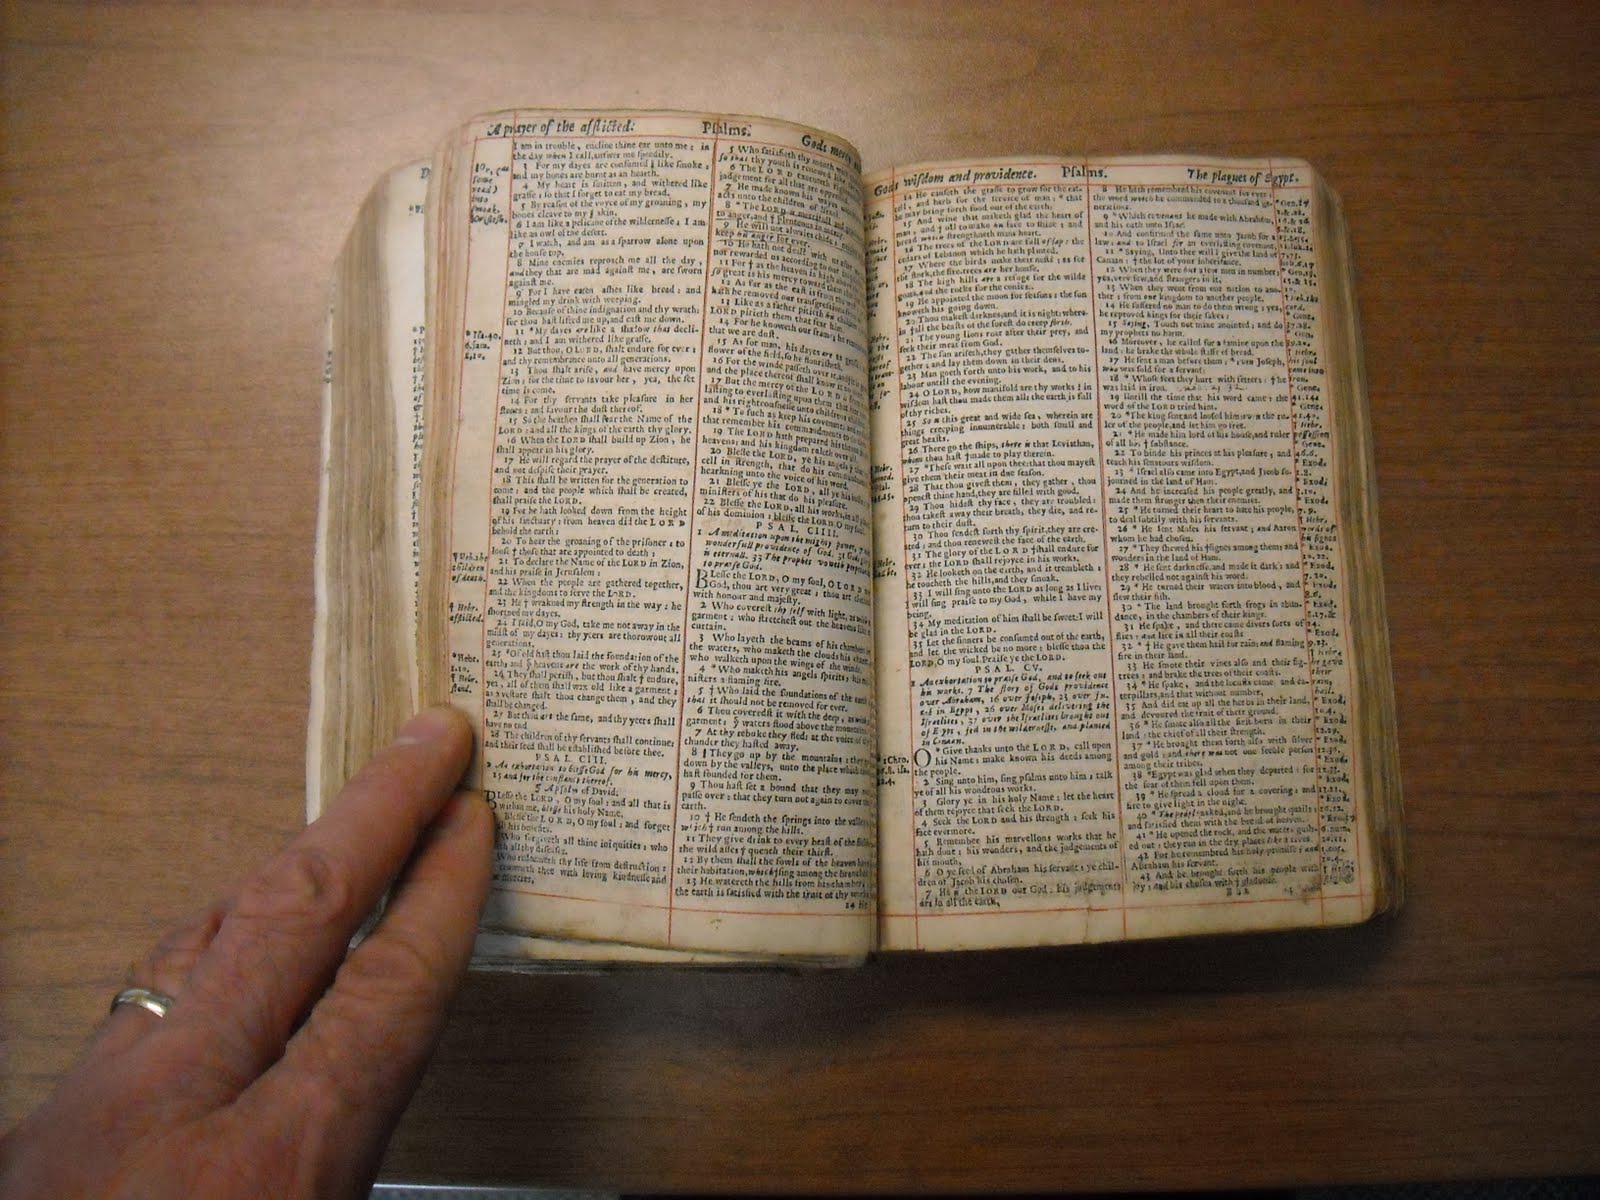 A prayer of the afflicted:
Psalms.
Gods mercy
I am in trouble, encline thine ear unto me: in
the day when I call, answer me speedily.
3 For my dayes are consumed like smoke:
and my bones are burnt as an hearth.
4 My heart is smitten, and withered like
grasse: so that I forget to eat my bread.
5 By reason of the voyce of my groaning, my
bones cleave to my skin.
6 I am like a pelicane of the wildernesse: I am
like an owl of the desert.
7 I watch, and am as a sparrow alone upon
the house top.
8 Mine enemies reproach me all the day,
and they that are mad against me, are sworn
against me.
9 For I have eaten ashes like bread: and
mingled my drink with weeping.
10 Because of thine indignation and thy wrath:
for thou hast lifted me up, and cast me down.
11 * My dayes are like a shadow that decli-
neth: and I am withered like grasse.
12 But thou, O LORD, shalt endure for ever:
and thy remembrance unto all generations.
13 Thou shalt arise, and have mercy upon
Zion: for the time to favour her, yea, the set
time is come.
14 For thy servants take pleasure in her
stones: and favour the dust thereof.
15 So the heathen shall fear the Name of the
LORD: and all the kings of the earth thy glory.
16 When the LORD shall build up Zion, he
shall appear in his glory.
17 He will regard the prayer of the destitute,
and not despise their prayer.
18 This shall be written for the generation to
come: and the people which shall be created,
shall praise the LORD.
19 For he hath looked down from the height
of his sanctuary: from heaven did the LORD
behold the earth:
20 To hear the groaning of the prisoner: to
loose † those that are appointed to death:
21 To declare the Name of the LORD in Zion,
and his praise in Jerusalem:
22 When the people are gathered together,
and the kingdoms to serve the LORD.
23 He † weakned my strength in the way: he
shortned my dayes.
24 I said, O my God, take me not away in the
midst of my dayes: thy yeers are thorowout all
generations.
25 * Of old hast thou laid the foundation of the
earth: and heavens are the work of thy hands.
26 They shall perish, but thou shalt † endure,
yea, all of them shall wax old like a garment:
as a vesture shalt thou change them, and they
shall be changed.
27 But thou art the same, and thy yeers shall
have no end.
28 The children of thy servants shall continue:
and their seed shall be established before thee.
PSAL. CIII.
An exhortation to blesse God for his mercy,
15 and for the constancy thereof.
¶ A psalm of David:
Blesse the LORD, O my soul: and all that is
within me, blesse his holy Name.
Blesse the LORD, O my soul: and forget
all his benefits.
Who forgiveth all thine iniquities: who
all thy diseases.
Who redeemeth thy life from destruction:
thee with loving kindnesse and
mercies.
5 Who satisfieth thy mouth
so that thy youth is renewed like
6 The LORD executeth
judgement for all that are oppressed.
7 He made known his wayes
acts unto the children of Israel.
8 * The LORD is mercifull and
to anger, and † plenteous in
9 He will not alwayes chide:
keep his anger for ever.
10 He hath not dealt with us after
nor rewarded us according to our
11 For † as the heaven is high above
so great is his mercy toward them
12 As far as the east is from the
hath he removed our transgressions
13 Like as a father pitieth his children
LORD pitieth them that fear him.
14 For he knoweth our frame: he
that we are dust.
15 As for man, his dayes are as
flower of the field, so he flourisheth.
16 For the winde passeth over it, and
and the place thereof shall know it
17 But the mercy of the LORD is
lasting to everlasting upon them that
and his righteousnesse unto childrens
18 * To such as keep his covenant: and
that remember his commandments to
19 The LORD hath prepared his
heavens: and his kingdom ruleth over
20 Blesse the LORD, ye his angels
cell in strength, that do his
hearkning unto the voice of his word.
21 Blesse ye the LORD, all ye his
ministers of his that do his pleasure.
22 Blesse the LORD, all his works, in all
of his dominion: blesse the LORD, O my soul.
PSAL. CIIII.
1 A meditation upon the mighty power, 7
wonderfull providence of God. 31 Gods
is eternall. 33 The prophet voweth
to praise God.
Blesse the LORD, O my soul, O LORD
God, thou art very great: thou art
with honour and majesty.
2 Who coverest thy self with light, as
garment: who stretchest out the heavens like
curtain.
3 Who layeth the beams of his chambers
the waters, who maketh the clouds his
who walketh upon the wings of the winde.
4 * Who maketh his angels spirits: his
nisters a flaming fire.
5 † Who laid the foundations of the
that it should not be removed for ever.
6 Thou coveredst it with the deep, as
garment: waters stood above the mountains.
7 At thy rebuke they fled: at the voice of
thunder they hasted away.
8 They go up by the mountains: they
down by the valleys, unto the place which
hast founded for them.
9 Thou hast set a bound that they may
passe over: that they turn not again to cover
earth.
10 † He sendeth the springs into the valleys,
which † run among the hills.
11 They give drink to every beast of the
the wild asses † quench their thirst.
12 By them shall the fowls of the heaven have
their habitation, which sing among the branches.
13 He watereth the hills from his chambers:
the earth is satisfied with the fruit of thy works.
14 He
Gods wisdom and providence.
Psalms.
The plagues of Egypt.
14 He causeth the grasse to grow for the cat-
tell, and herb for the service of man: that
he may bring forth food out of the earth.
15 And wine that maketh glad the heart of
man, and oil to make his face to shine: and
bread which strengtheneth mans heart.
16 The trees of the LORD are full of sap: the
cedars of Lebanon which he hath planted.
17 Where the birds make their nests: as for
the stork, the firre-trees are her house.
18 The high hills are a refuge for the wilde
goats, and the rocks for the conies.
19 He appointed the moon for seasons: the sun
knoweth his going down.
20 Thou makest darknesse, and it is night: where-
in all the beasts of the forest do creep forth.
21 The young lions roar after their prey, and
seek their meat from God.
22 The sun ariseth, they gather themselves to-
gether: and lay them down in their dens.
23 Man goeth forth unto his work, and to his
labour untill the evening.
24 O LORD, how manifold are thy works! in
wisdom hast thou made them all: the earth is full
of thy riches.
25 So is this great and wide sea, wherein are
things creeping innumerable: both small and
great beasts.
26 There go the ships, there is that Leviathan,
whom thou hast † made to play therein.
27 * These wait all upon thee: that thou mayest
give them their meat in due season.
28 That thou givest them, they gather, thou
openest thine hand, they are filled with good.
29 Thou hidest thy face, they are troubled:
thou takest away their breath, they die, and re-
turn to their dust.
30 Thou sendest forth thy spirit, they are cre-
ated: and thou renewest the face of the earth.
31 The glory of the LORD † shall endure for
ever: the LORD shall rejoyce in his works.
32 He looketh on the earth, and it trembleth:
he toucheth the hills, and they smoak.
33 I will sing unto the LORD as long as I live:
I will sing praise to my God, while I have my
being.
34 My meditation of him shall be sweet: I will
be glad in the LORD.
35 Let the sinners be consumed out of the earth,
and let the wicked be no more: blesse thou the
LORD, O my soul. Praise ye the LORD.
PSAL. CV.
1 An exhortation to praise God, and to seek out
his works. 7 The story of Gods providence
over Abraham, 16 over Joseph, 23 over Ja-
cob in Egypt, 26 over Moses delivering the
Israelites, 37 over the Israelites brought out
of Egypt, fed in the wildernesse, and planted
in Canaan.
O * Give thanks unto the LORD, call upon
his Name: make known his deeds among
the people.
2 Sing unto him, sing psalms unto him: talk
ye of all his wondrous works.
3 Glory ye in his holy Name: let the heart
of them rejoyce that seek the LORD.
4 Seek the LORD and his strength: seek his
face evermore.
5 Remember his marvellous works that he
hath done: his wonders, and the judgements of
his mouth,
6 O ye seed of Abraham his servant: ye chil-
dren of Jacob his chosen.
7 He is the LORD our God: his judgements
are in all the earth.
8 He hath remembred his covenant for ever:
the word which he commanded to a thousand ge-
nerations.
9 * Which covenant he made with Abraham,
and his oath unto Isaac.
10 And confirmed the same unto Jacob for a
law: and to Israel for an everlasting covenant,
11 * Saying, Unto thee will I give the land of
Canaan: † the lot of your inheritance.
12 When they were but a few men in number;
yea, very few, and strangers in it,
13 When they went from one nation to ano-
ther: from one kingdom to another people,
14 He suffered no man to do them wrong: yea,
he reproved kings for their sakes:
15 Saying, Touch not mine anointed: and do
my prophets no harm.
16 Moreover, he called for a famine upon the
land: he brake the whole staffe of bread.
17 He sent a man before them: * even Joseph,
who was sold for a servant.
18 * Whose feet they hurt with fetters: † he
was laid in iron.
19 Untill the time that his word came: the
word of the LORD tried him.
20 * The king sent and loosed him: even the ru-
ler of the people, and let him go free.
21 * He made him lord of his house, and ruler
of all his † substance.
22 To binde his princes at his pleasure, and
teach his senatours wisdom.
23 * Israel also came into Egypt, and Jacob so-
journed in the land of Ham.
24 And he increased his people greatly, and
made them stronger then their enemies.
25 * He turned their heart to hate his people,
to deal subtilly with his servants.
26 * He sent Moses his servant: and Aaron
whom he had chosen.
27 * They shewed his † signes among them: and
wonders in the land of Ham.
28 * He sent darknesse, and made it dark: and
they rebelled not against his word.
29 * He turned their waters into blood, and
slew their fish.
30 * The land brought forth frogs in abun-
dance, in the chambers of their kings.
31 He spake, and there came divers sorts of
flies: and lice in all their coasts.
32 * † He gave them hail for rain: and flaming
fire in their land.
33 He smote their vines also and their fig-
trees: and brake the trees of their coasts.
34 * He spake, and the locusts came: and ca-
terpillars, and that without number,
35 And did eat up all the herbs in their land,
and devoured the fruit of their ground.
36 * He smote also all the first born in their
land: the chief of all their strength.
37 * He brought them forth also with silver
and gold: and there was not one feeble person
among their tribes.
38 * Egypt was glad when they departed: for
the fear of them fell upon them.
39 * He spread a cloud for a covering: and
fire to give light in the night.
40 * The people asked, and he brought quails:
and satisfied them with the bread of heaven.
41 * He opened the rock, and the waters gush-
ed out: they ran in the dry places like a river.
42 For he remembred his holy promise: and
Abraham his servant.
43 And he brought forth his people with
joy: and his chosen with † gladnesse.